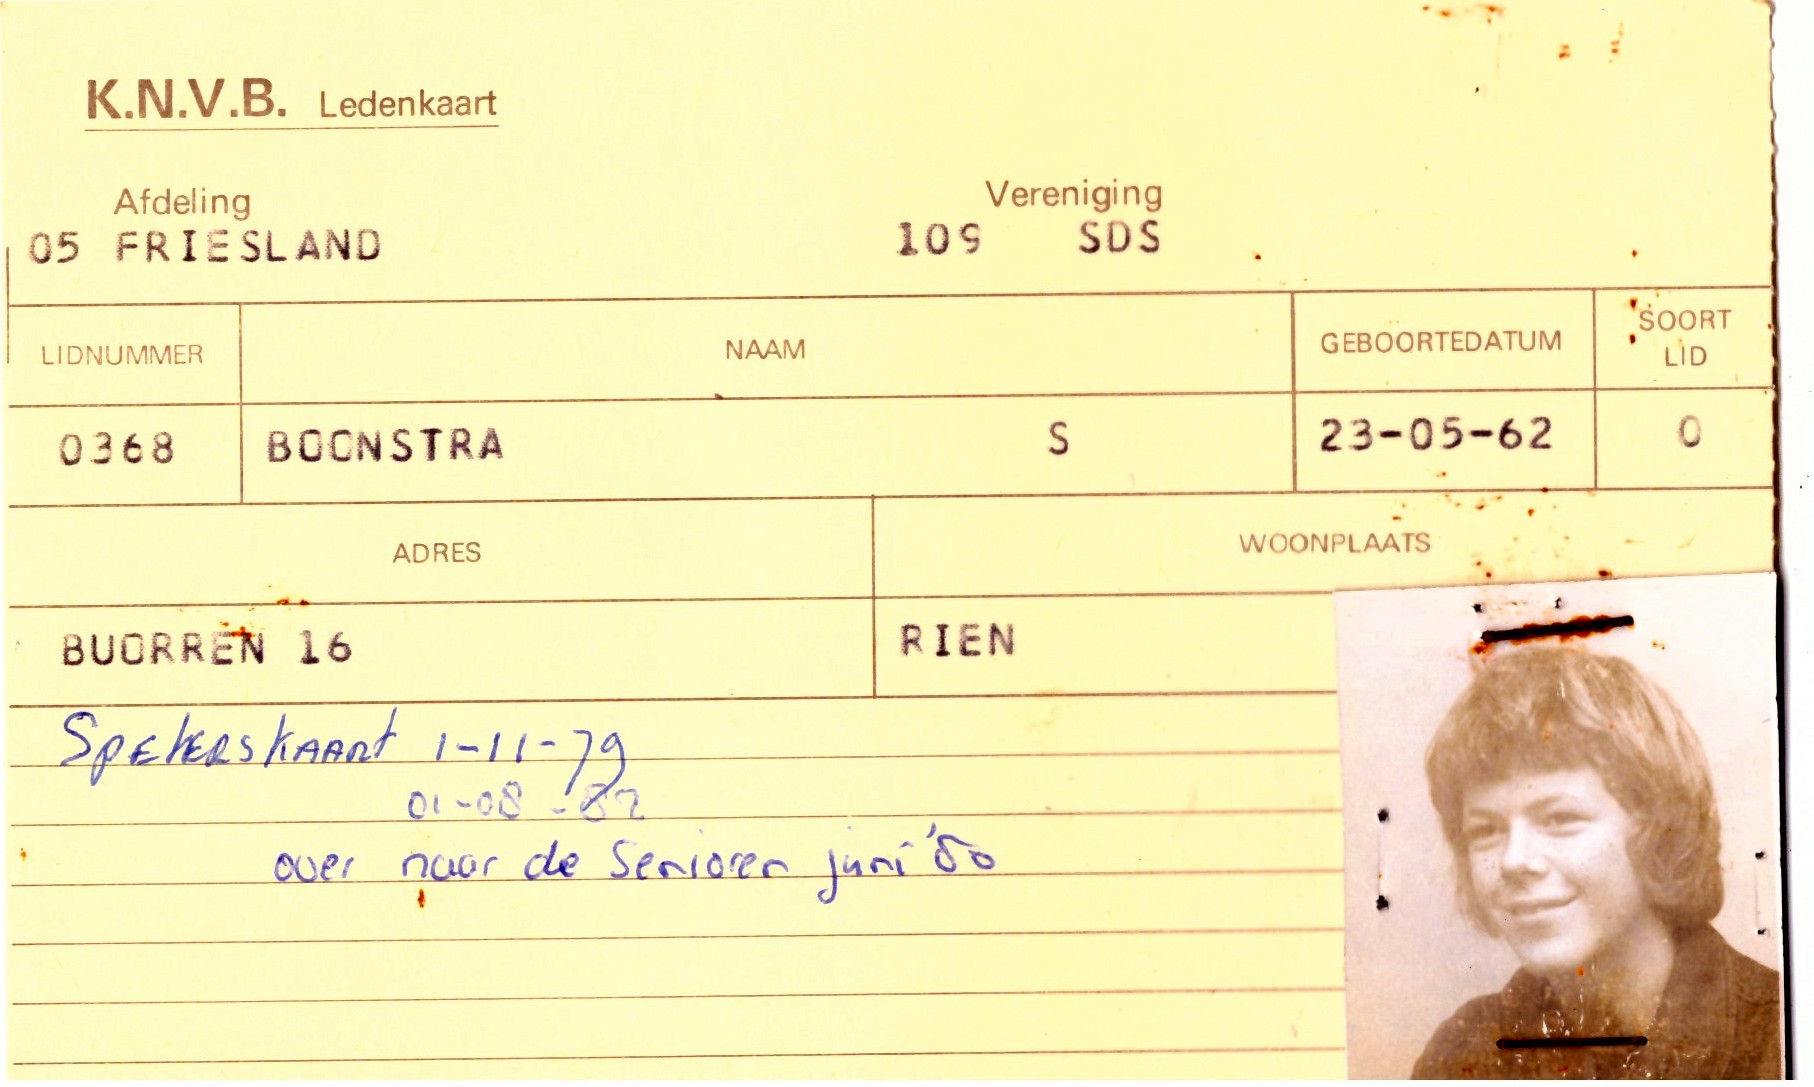 K.N.V.B. Ledenkaart
Afdeling Vereniging
05 FRIESLAND 109 SDS
LIDNUMMER NAAM GEBOORTEDATUM SOORT LID
0368 BOONSTRA S 23-05-62 0
ADRES WOONPLAATS
BUORREN 16 RIEN
Spelerskaart 1-11-79
01-08-82
over naar de Senioren juni '80